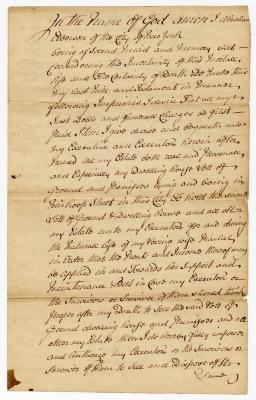 In the Name of God Amen I Abraham
of the City of New York
being of Sound Mind and Memory but
Considering the Incertainty of this
life and the Certainty of Death Do make this
my last Will and Testament in Manner
following Imprimis I desire that all my
Just Debts and funeral Charges be first
Paid Item I give devise and bequeath unto
my Executrix and Executors herein after
Named all my Estate both real and Personal
and Especially my Dwelling house Lott of
Ground and Premisses lying and being in
Street in this City To hold the same
Lott of Ground & Dwelling house and all other
my Estate unto my Executors for and during
the Natural life of my loving wife
in Order that the Rents and Income thereof may
be applied in and towards her Support and
Maintenance But in Case my Executors or
the Survivors or Survivor of them should think
proper after my Death to Sell the said Lott of
Ground dwelling house and Premisses and all
other my Estate then I do hereby fully impower
and Authorize my Executors or the Survivors or
Survivor of them to Sell and Dispose of the
Same